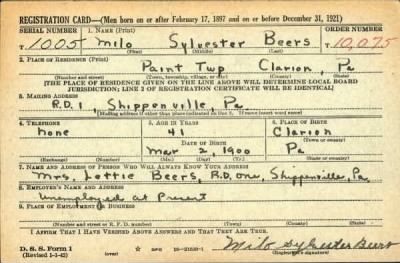 REGISTRATION CARD—(Men born on or after February 17, 1897 and on or before December 31, 1921)
SERIAL NUMBER 1. NAME (Print) ORDER NUMBER
T 1005 Milo Sylvester Beers T 10,075
(First) (Middle) (Last)
2. PLACE OF RESIDENCE (Print)
Paint Twp Clarion Pa
(Number and street) (Town, township, village, or city) (County) (State)
[THE PLACE OF RESIDENCE GIVEN ON THE LINE ABOVE WILL DETERMINE LOCAL BOARD
JURISDICTION; LINE 2 OF REGISTRATION CERTIFICATE WILL BE IDENTICAL]
3. MAILING ADDRESS
R.D.1, Shippenville, Pa
[Mailing address if other than place indicated on line 2. If same insert word same]
4. TELEPHONE 5. AGE IN YEARS 6. PLACE OF BIRTH
none 41 Clarion
DATE OF BIRTH (Town or county)
Mar 2, 1900 Pa
(Exchange) (Number) (Mo.) (Day) (Yr.) (State or country)
7. NAME AND ADDRESS OF PERSON WHO WILL ALWAYS KNOW YOUR ADDRESS
Mrs. Lottie Beers, R.D. one, Shippenville, Pa
8. EMPLOYER'S NAME AND ADDRESS
Unemployed at Present
9. PLACE OF EMPLOYMENT OR BUSINESS
(Number and street or R. F. D. number) (Town) (County) (State)
I AFFIRM THAT I HAVE VERIFIED ABOVE ANSWERS AND THAT THEY ARE TRUE.
D. S. S. Form 1 Milo Sylvester Beers
(Revised 1-1-42) (over) (Registrant's signature)